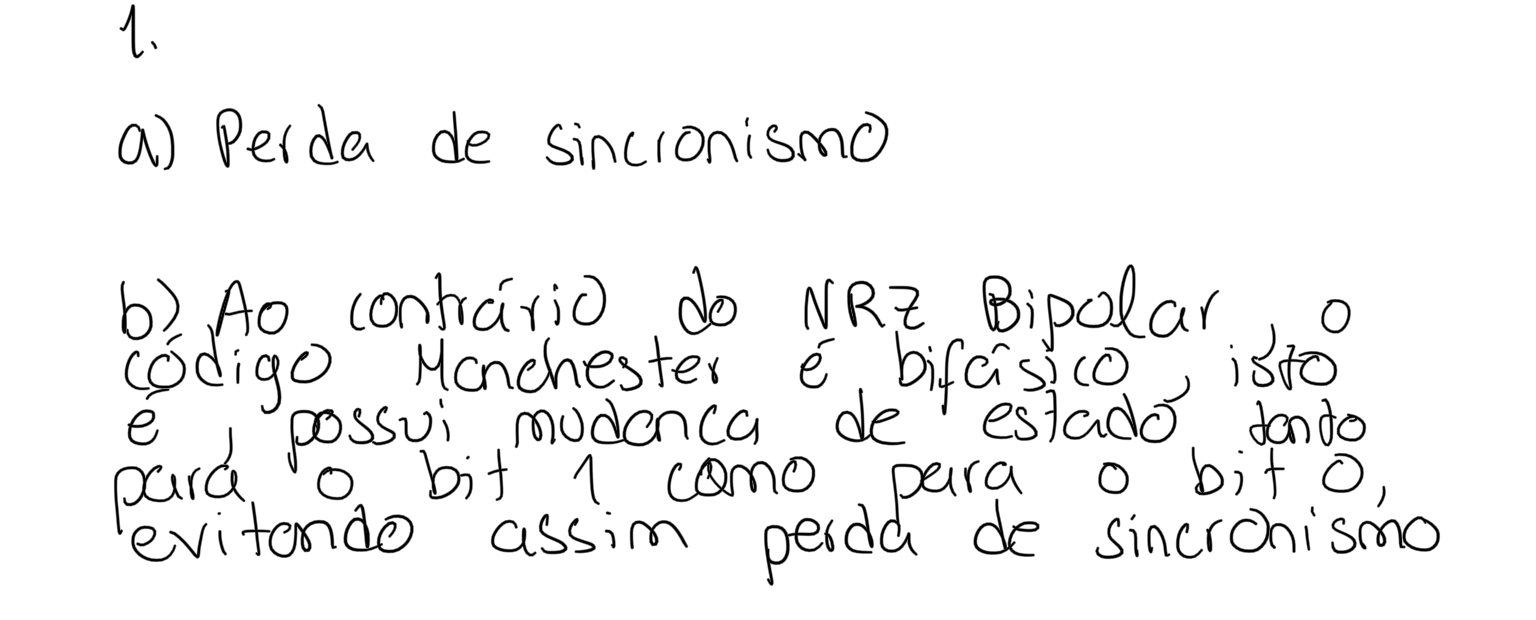 1.
a) Perda de sincronismo
b) Ao contrário do NRZ Bipolar, o
código Manchester é bifásico, isto
é, possui mudança de estado tanto
para o bit 1 como para o bit 0,
evitando assim perda de sincronismo